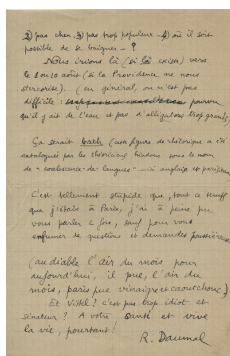 2) pas cher. 3) pas trop populeux. 4) où il soit
possible de se baigner — ?
Nous irions là (si là existe) vers
le 8 ou 10 août (si la Providence ne nous
stercorise). (en général, on n'est pas
difficile : pourvu
qu'il y ait de l'eau et pas d'alligators trop grands)
Ça serait (cette figure de rhétorique a été
cataloguée par les rhétoriciens hindous sous le nom
de "coalescence-de-langues" — ici anglais et parisien
C'est tellement stupide que, tout ce temps
que j'étais à Paris, j'ai à peine pu
vous parler 2 fois, sauf pour vous
enfumer de questions et demandes poussiéreuses
(audiable l'air du mois pour
aujourd'hui, il pue, l'air du
mois, paris pue vinaigre et caoutchouc)
Et Vittel? c'est pas trop idiot et
sinistre? A votre santé et vive
la vie, pourtant!
R. Daumal